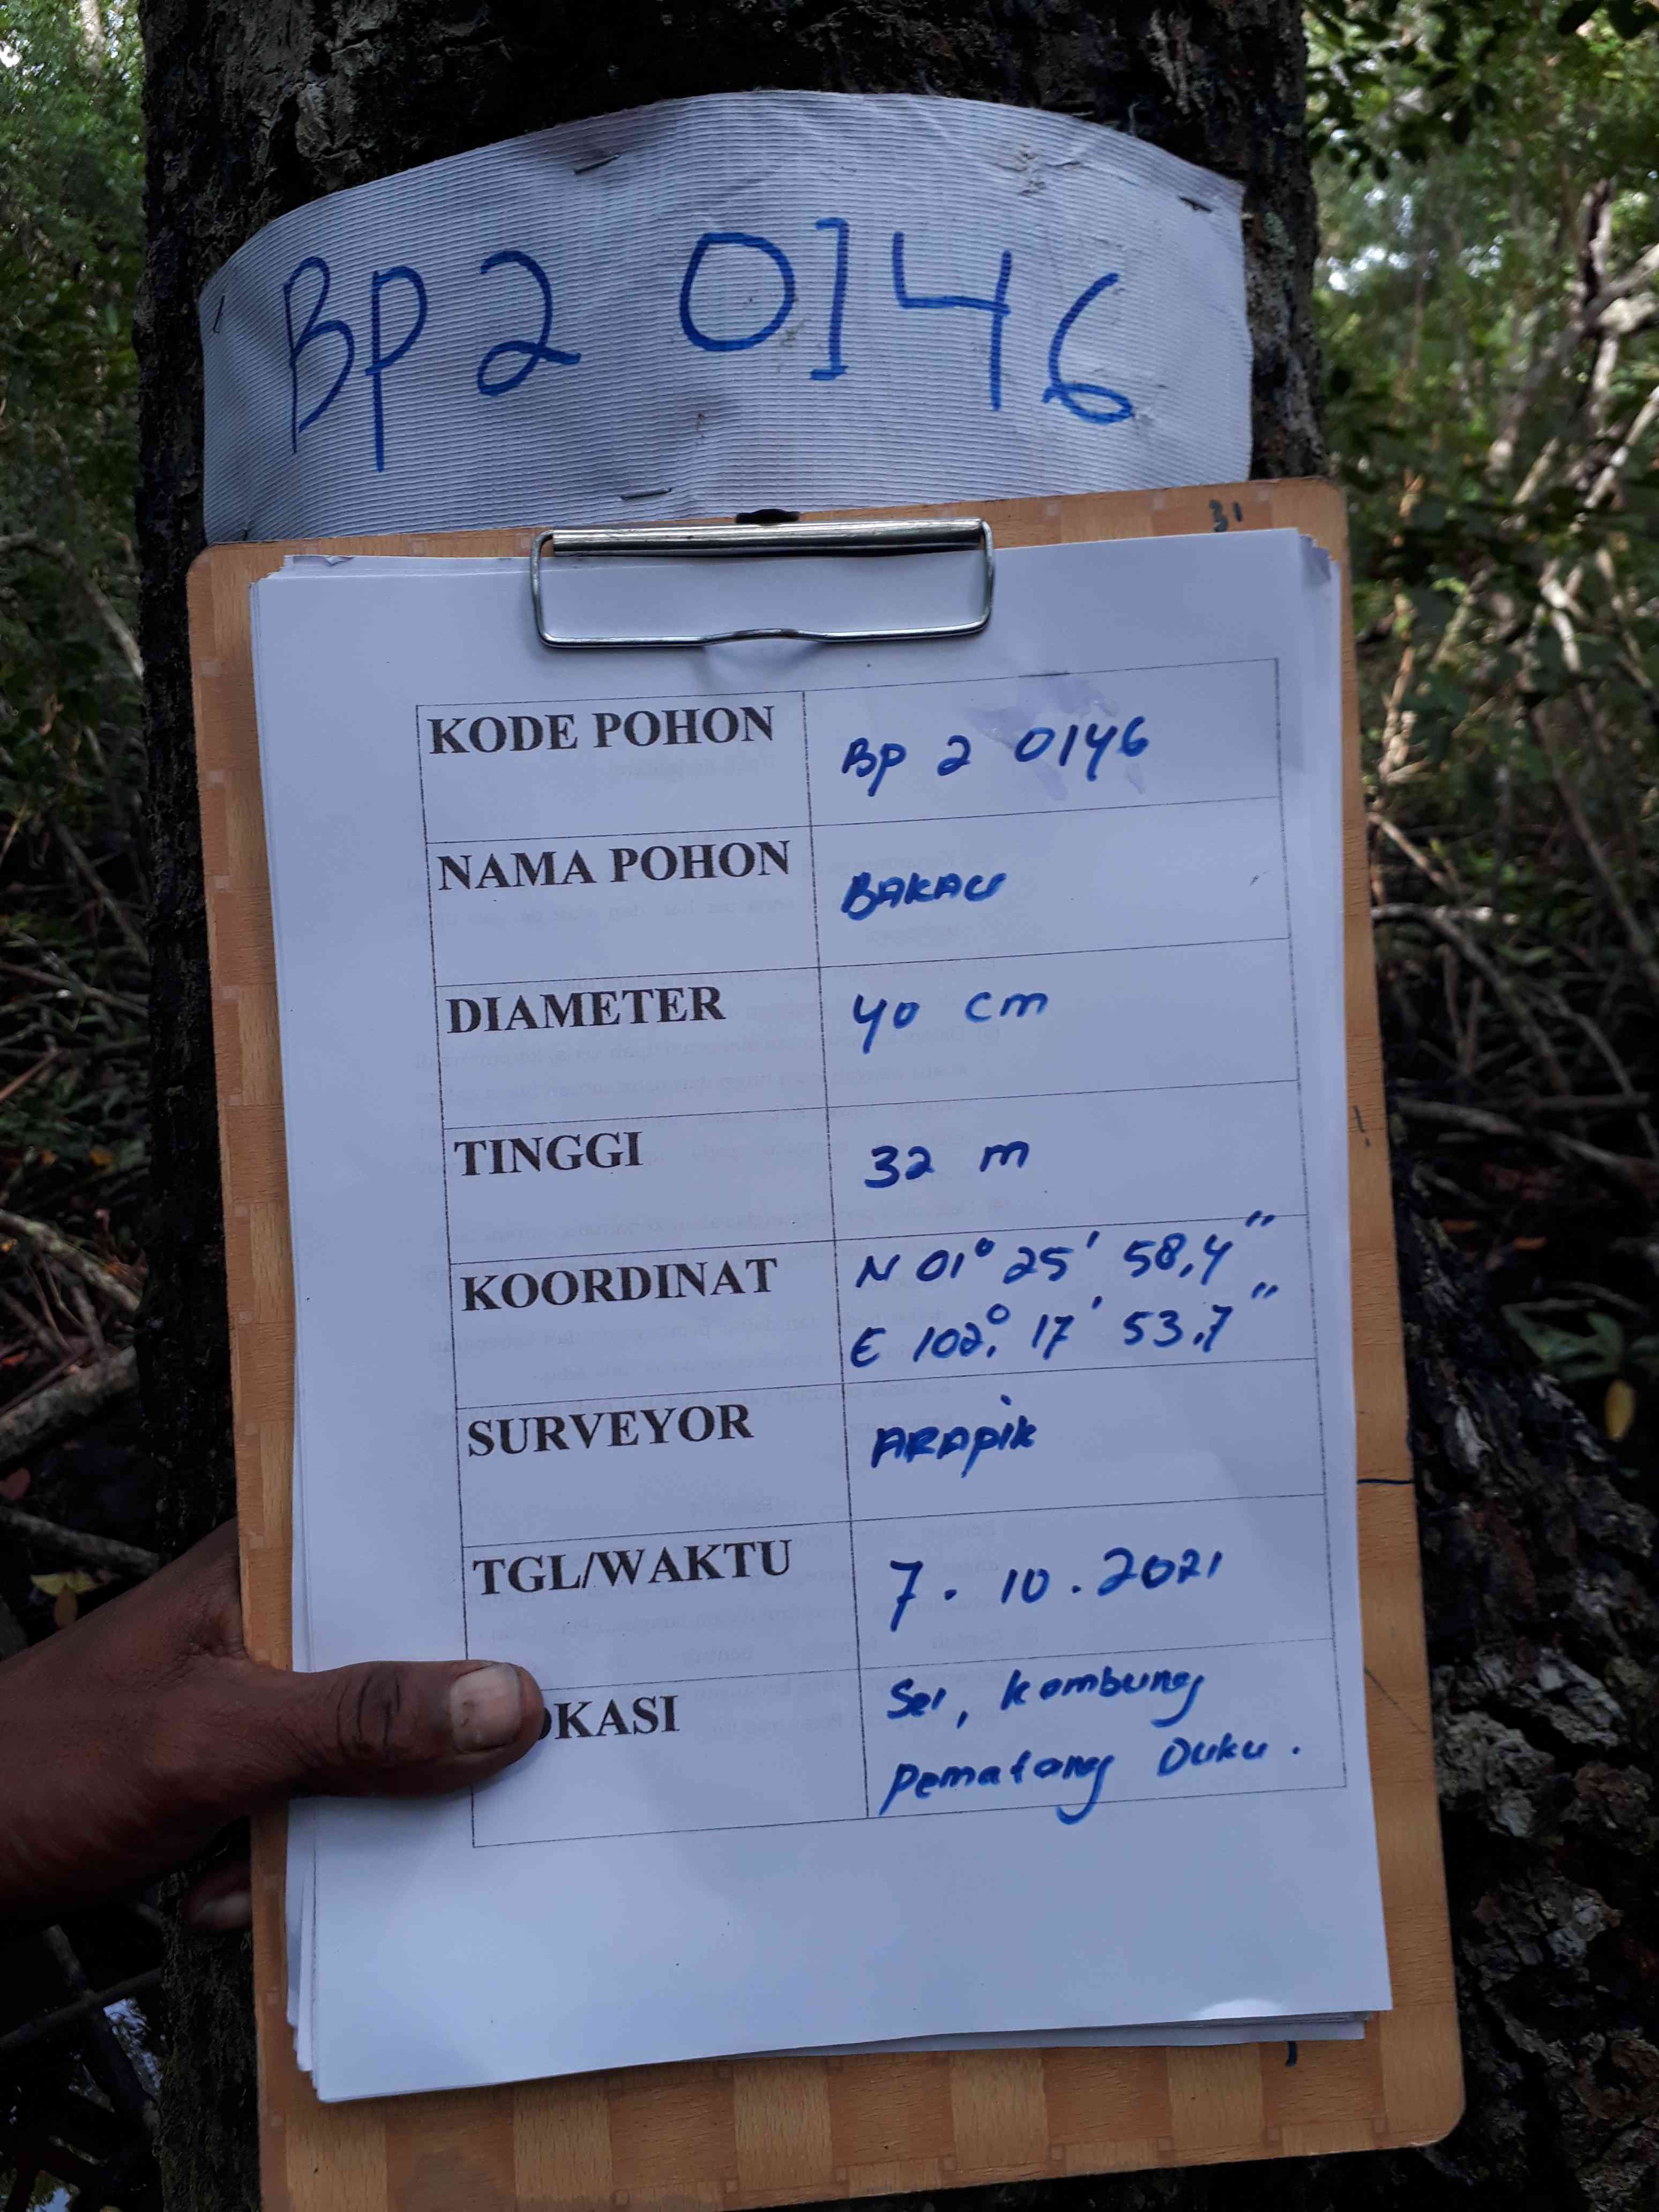 BP 2 0146
31
KODE POHON BP 2 0146
NAMA POHON BAKAU
DIAMETER 40 cm
TINGGI 32 m
KOORDINAT N 01° 25' 58,4"
E 102° 17' 53,7"
SURVEYOR ARAPIK
TGL/WAKTU 7. 10. 2021
OKASI Sei, Kembung
Pematang Duku.